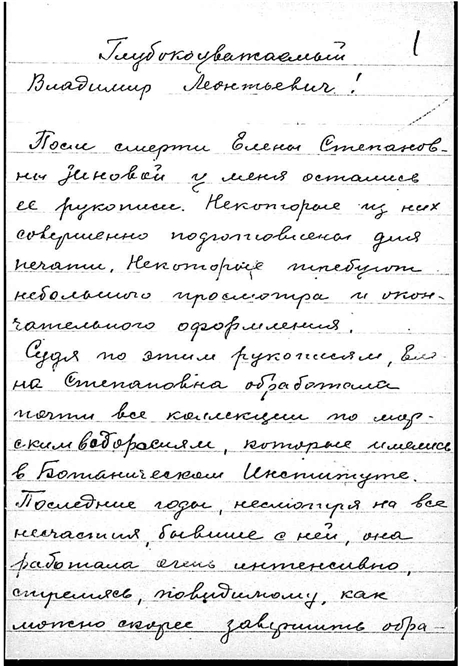 1
Глубокоуважаемый
Владимир Леонтьевич!
После смерти Елены Степанов-
ны Зиновой у меня остались
ее рукописи. Некоторые из них
совершенно подготовлены для
печати. Некоторые требуют
небольшого просмотра и окон-
чательного оформления.
Судя по этим рукописям, Еле-
на Степановна обработала
почти все коллекции по мор-
ским водорослям, которые имелись
в Ботаническом Институте.
Последние годы, несмотря на все
несчастия, бывшие с ней, она
работала очень интенсивно,
стремясь, повидимому, как
можно скорее завершить обра-